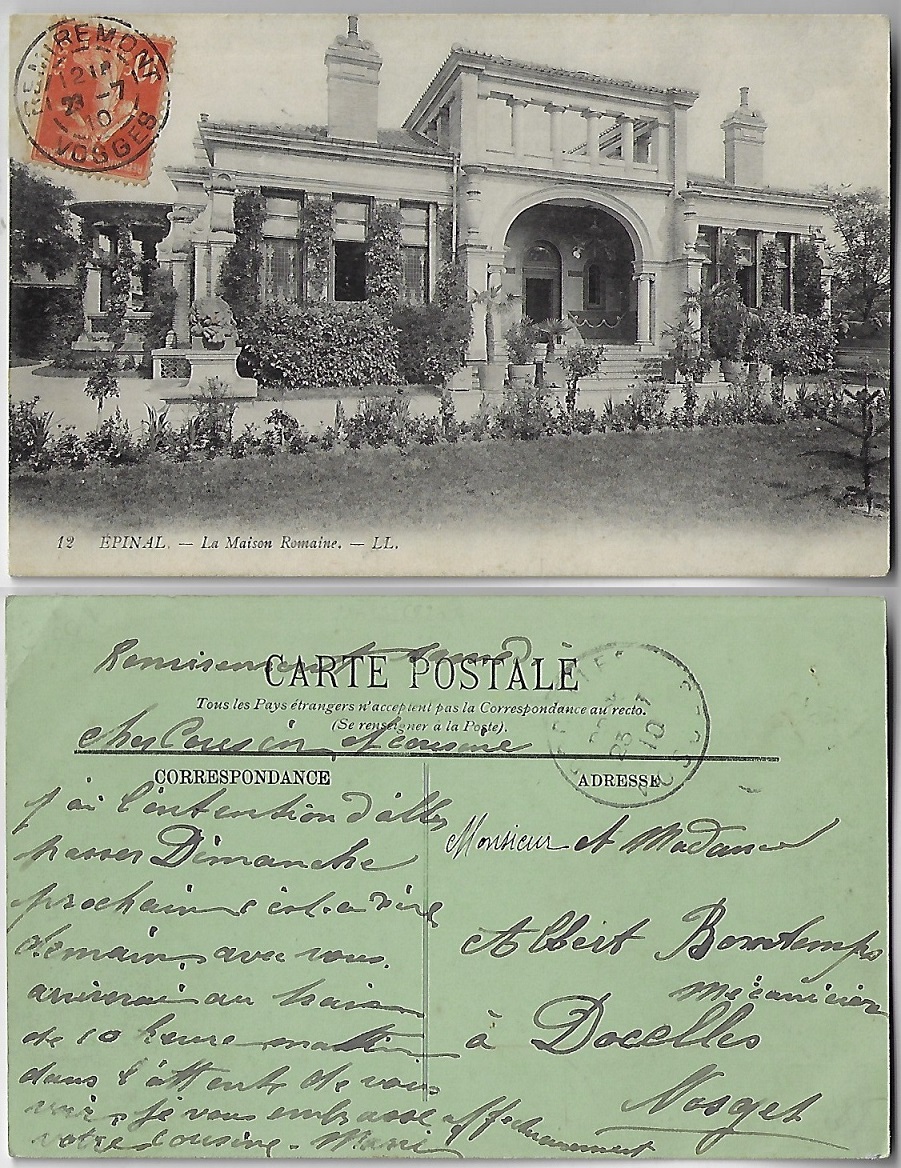 REMIREMONT
12
23 -7
10
VOSGES
12 ÉPINAL. — La Maison Romaine. — LL.
Remiremont
CARTE POSTALE
Tous les Pays étrangers n'acceptent pas la Correspondance au recto.
(Se renseigner à la Poste).
cher Cousin et cousine
CORRESPONDANCE
ADRESSE
j'ai l'intention d'aller
passer Dimanche
prochain c'est a dire
demain avec vous.
arriverai au train
de 10 heure mattin
dans l'attente de vous
voir, je vous embrasse affectueusement
votre cousine. Marie
Monsieur et Madame
Albert Bontemps
mécanicien
à Docelles
Vosges